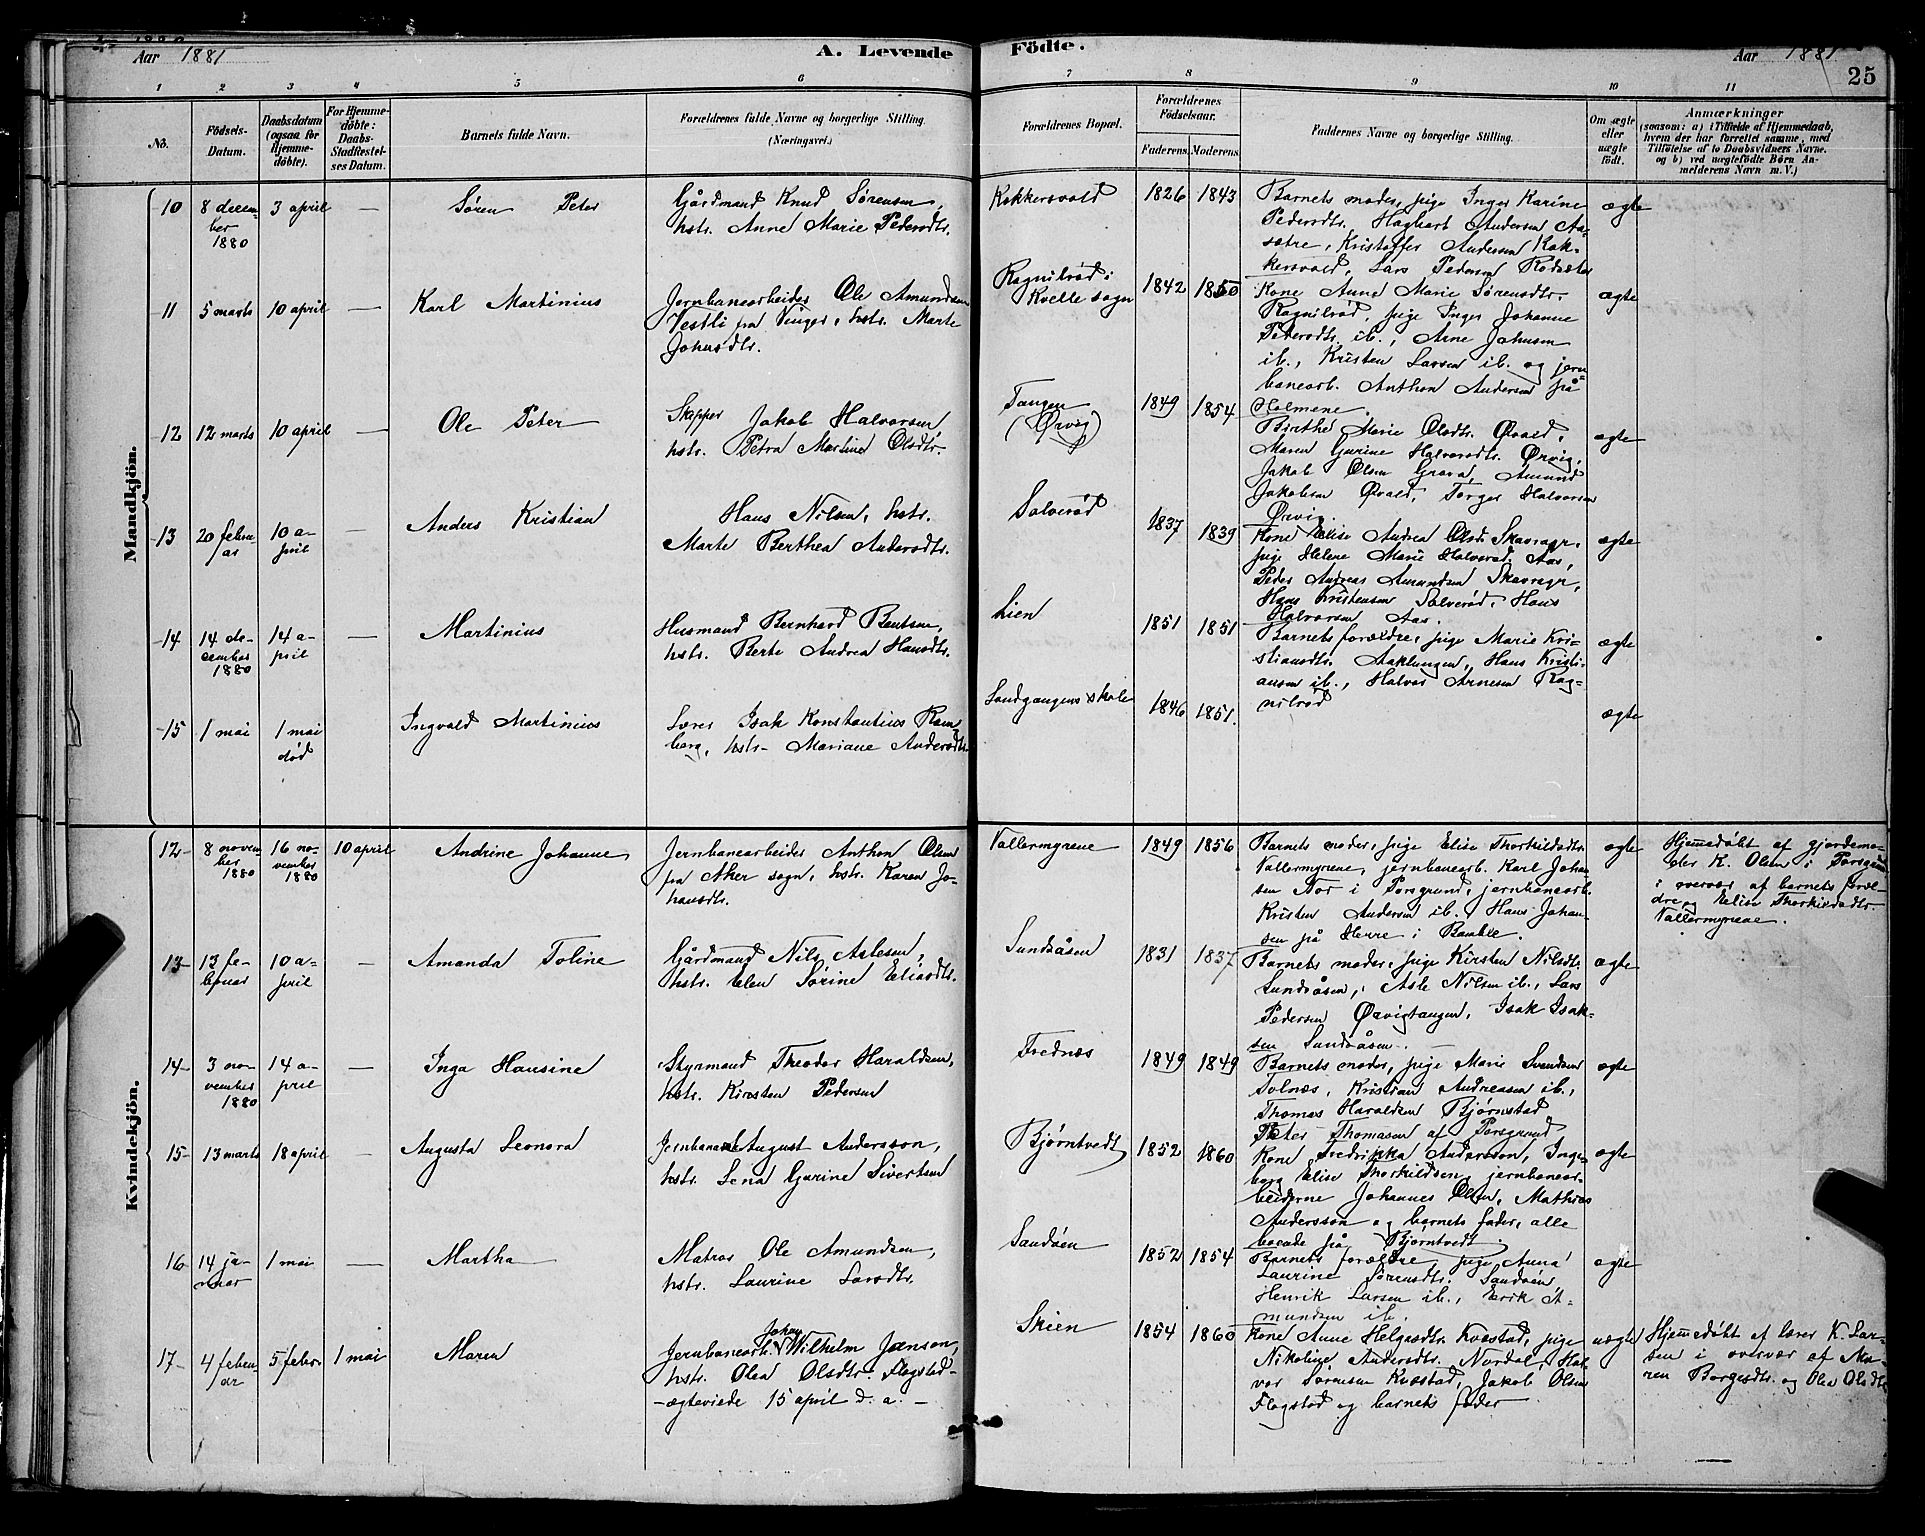 Aar 1881
A. Levende
Födte.
Aar 1881
25
1 2 3 4 5 6 7 8 9 10 11
No.
Födsels-
Datum.
Daabsdatum
(ogsaa for
Hjemme-
döbte).
For Hjemme-
döbte:
Daabs-
Stadfæstel-
ses Datum.
Barnets fulde Navn.
Forældrenes fulde Navne og borgerlige Stilling.
(Næringsvei.)
Forældrenes Bopæl.
Forældrenes
Födselsaar.
Faderens. Moderens.
Faddernes Navne og borgerlige Stilling.
Om ægte
eller
uægte
födt.
Anmærkninger
(saasom: a) i Tilfælde af Hjemmedaab,
hvem der har forrettet samme, med
Tilföielse af to Daabsvidners Navne,
og b) ved uægtefödte Börn An-
melderens Navn m. V.)
Mandkjön.
10
8 decem-
ber
1880
3 april
—
Søren Peter
Gårdmand Knud Sørensen,
hstr. Anne Marie Pedersdtr.
Kokkersvold
1826 1843
Barnets moder, pige Inger Karine
Pedersdtr. Hagbart Andersen Aa-
sætre, Kristoffer Andersen Kok-
kersvold, Lars Pedersen Rødseter
ægte
11
5 marts
10 april
—
Karl Martinius
Jernbanearbeider Ole Amundsen
Vestli fra Vinger, hstr. Marte
Johnsdtr.
Ragnilrød i
Kvelle sogn
1842 1850
Kone Anne Marie Sørensdtr.
Ragnilrød, pige Inger Johanne
Pedersdtr. ib., Arne Johnsen
ib., Kristen Larsen ib. og jern-
banearb. Anthon Andersen på
Holmene.
ægte
12
12 marts
10 april
—
Ole Peter
Skipper Jakob Halvorsen
hstr. Petra Martine Olsdtr.
Tangen
(Ørvig)
1849 1854
Birthe Marie Olsdtr. Øvald,
Maren Gurine Halvorsdtr. Ørvig,
Jakob Olsen Grava, Amund
Jakobsen Øvald, Torger Halvorsen
Ørvig.
ægte
13
20 febru-
ar
10 a-
pril
—
Anders Kristian
Hans Nilsen, hstr.
Marte Berthea Andersdtr.
Solverød
1837 1839
Kone Elise Andrea Olsdtr. Skavragr,
pige Helene Marie Halvorsd. Aas,
Peder Andreas Amundsen Skavragr,
Hans Kristensen Solverød, Hans
Halvorsen Aas.
ægte
14
14 de-
cember
1880
14 a-
pril
—
Martinius
Husmand Bernhard Bentsen,
hstr. Berte Andrea Hansdtr.
Lien
1851 1851
Barnets forældre, pige Marie Kri-
stiansdtr. Aaklungen, Hans Kristi-
ansen ib., Halvor Arnesen Rag-
nilrød
ægte
15
1 mai
1 mai
død
Ingvald Martinius
Lærer Isak Konstantius Ram
berg, hstr. Mariane Andersdtr.
Landgangens skole
1846 1851.
ægte
Kvindekjön.
12
8 novem-
ber
1880
16 no-
vember
1880
10 april
Andrine Johanne
Jernbanearbeider Anthon Olsen
fra Aker sogn, hstr. Karen Jo-
hansdtr.
Vallermyrene
1849 1856
Barnets moder, pige Elise Thorkildsdtr.
Vallermyrene, jernbanearb. Karl Johan
sen Nor i Porsgrund, jernbanearb.
Kristen Andersen ib. Hans Johan-
sen på Herre i Bamble.
ægte
Hjemmedøbt af gjordemo-
der K. Olsen i Porsgrund
i overvær af barnets foræl-
dre og Elise Thorkildsdtr.
Vallermyrene.
13
13 fe-
bruar
10 a-
pril
—
Amanda Toline
Gårdmand Nils Aslesen,
hstr. Elen Sørine Eliasdtr.
Sundsåsen
1831 1837
Barnets moder, pige Kirsten Nilsdtr.
Sundsåsen, Asle Nilsen ib., Lars
Pedersen Ørvigtangen, Isak Isak-
sen Sundsåsen. —
ægte
14
3 no-
vember
1880
14 a-
pril
—
Inga Hansine
Styrmand Theodor Haraldsen,
hstr. Kirsten Pedersen
Frednæs
1849 1849
Barnets moder, pige Marie Svendsen
Tolnæs, Kristian Andreasen ib.,
Thomas Haraldsen Bjørnstad
Peter Thomasen af Porsgrund
ægte
15
13 marts
18 april
—
Augusta Leonora
Jernbanearb August Andersson,
hstr. Lena Gurine Sivertsen
Bjørntvedt
1852 1860
Kone Fredrikka Andersson, Inge-
borg Elise Thorkildsen, jernbanear-
beiderne Johannes Olsen, Mathias
Andersson og barnets fader, alle
boende på Bjørntvedt.
ægte
16
14 ja-
nuar
1 mai
—
Martha
Matros Ole Amundsen,
hstr. Laurine Larsdtr.
Sandøen
1852 1854
Barnets forældre, pige Anna
Laurine Sørensdtr. Sandøen
Henrik Larsen ib., Erik A-
mundsen ib.
ægte
17
4 febru-
ar
5 febr.
1 mai
Maren
Jernbanearb. Johan Wilhelm Janson,
hstr. Olea Olsdtr. Flogstad-
- ægteviede 15 april d. a. -
Skien
1854 1860
Kone Anne Helgesdtr. Kvæstad, pige
Nikoline Andersdtr. Nordal, Hal-
vor Sørensen Kvæstad, Jakob Olsen
Flogstad og barnets fader
uægte
Hjemmedøbt af lærer K. Lar-
sen i overvær af Ma-
ren Borgesdtr. og Olea Olsdtr.